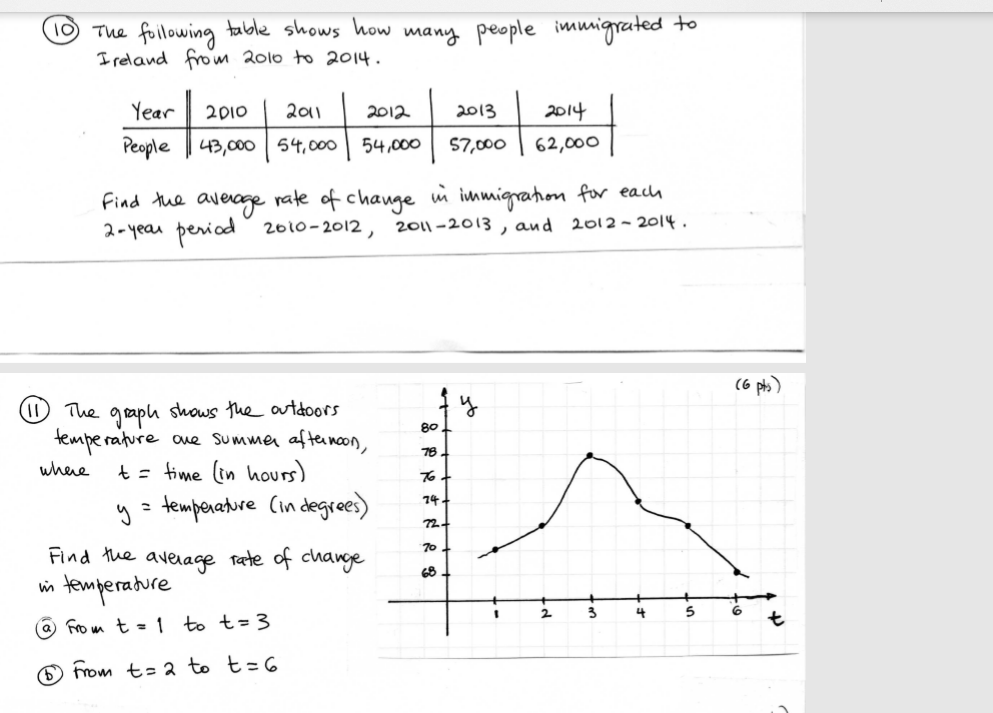 10 The following table shows how many people immigrated to
Ireland from 2010 to 2014.
Year 2010 2011 2012 2013 2014
People 43,000 54,000 54,000 57,000 62,000
Find the average rate of change in immigration for each
2-year period 2010-2012, 2011-2013, and 2012-2014.
(6 pts)
11 The graph shows the outdoors
temperature one summer afternoon,
where t = time (in hours)
y = temperature (in degrees)
Find the average rate of change
in temperature
a From t = 1 to t = 3
b From t = 2 to t = 6
y
80
78
76
74
72
70
68
1 2 3 4 5 6
t